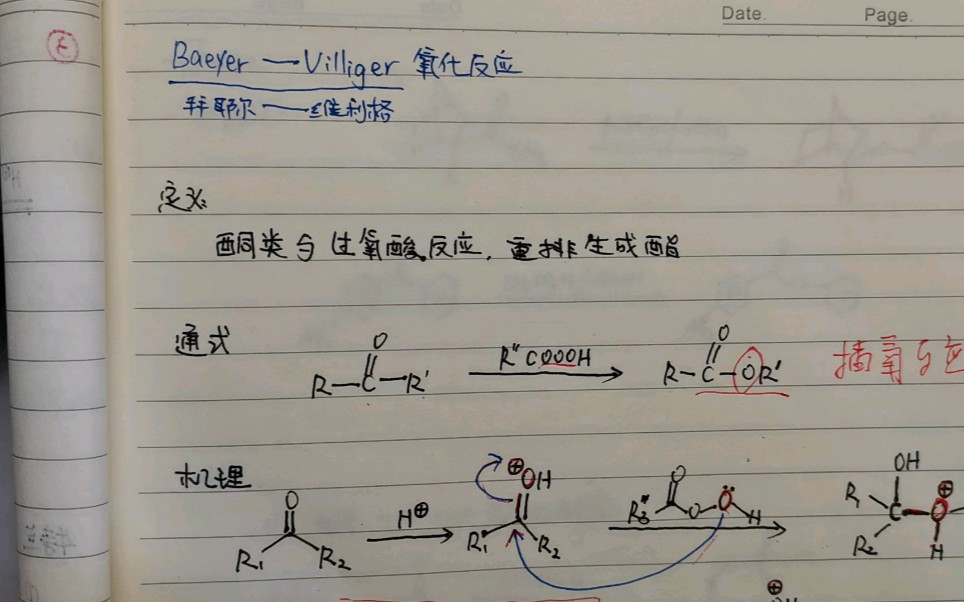 Date. Page.
Baeyer — Villiger 氧化反应
拜耶尔 —— 维利格
定义:
酮类与过氧酸反应，重排生成酯
通式
O
R—C—R' R''COOOH O
R—C—OR' 插氧反应
机理
O
R₁ R₂ H⊕ ⊕OH
R₁ R₂ R₃ O O Ö H OH
R₁ R₂ C ⊕O H
⊕